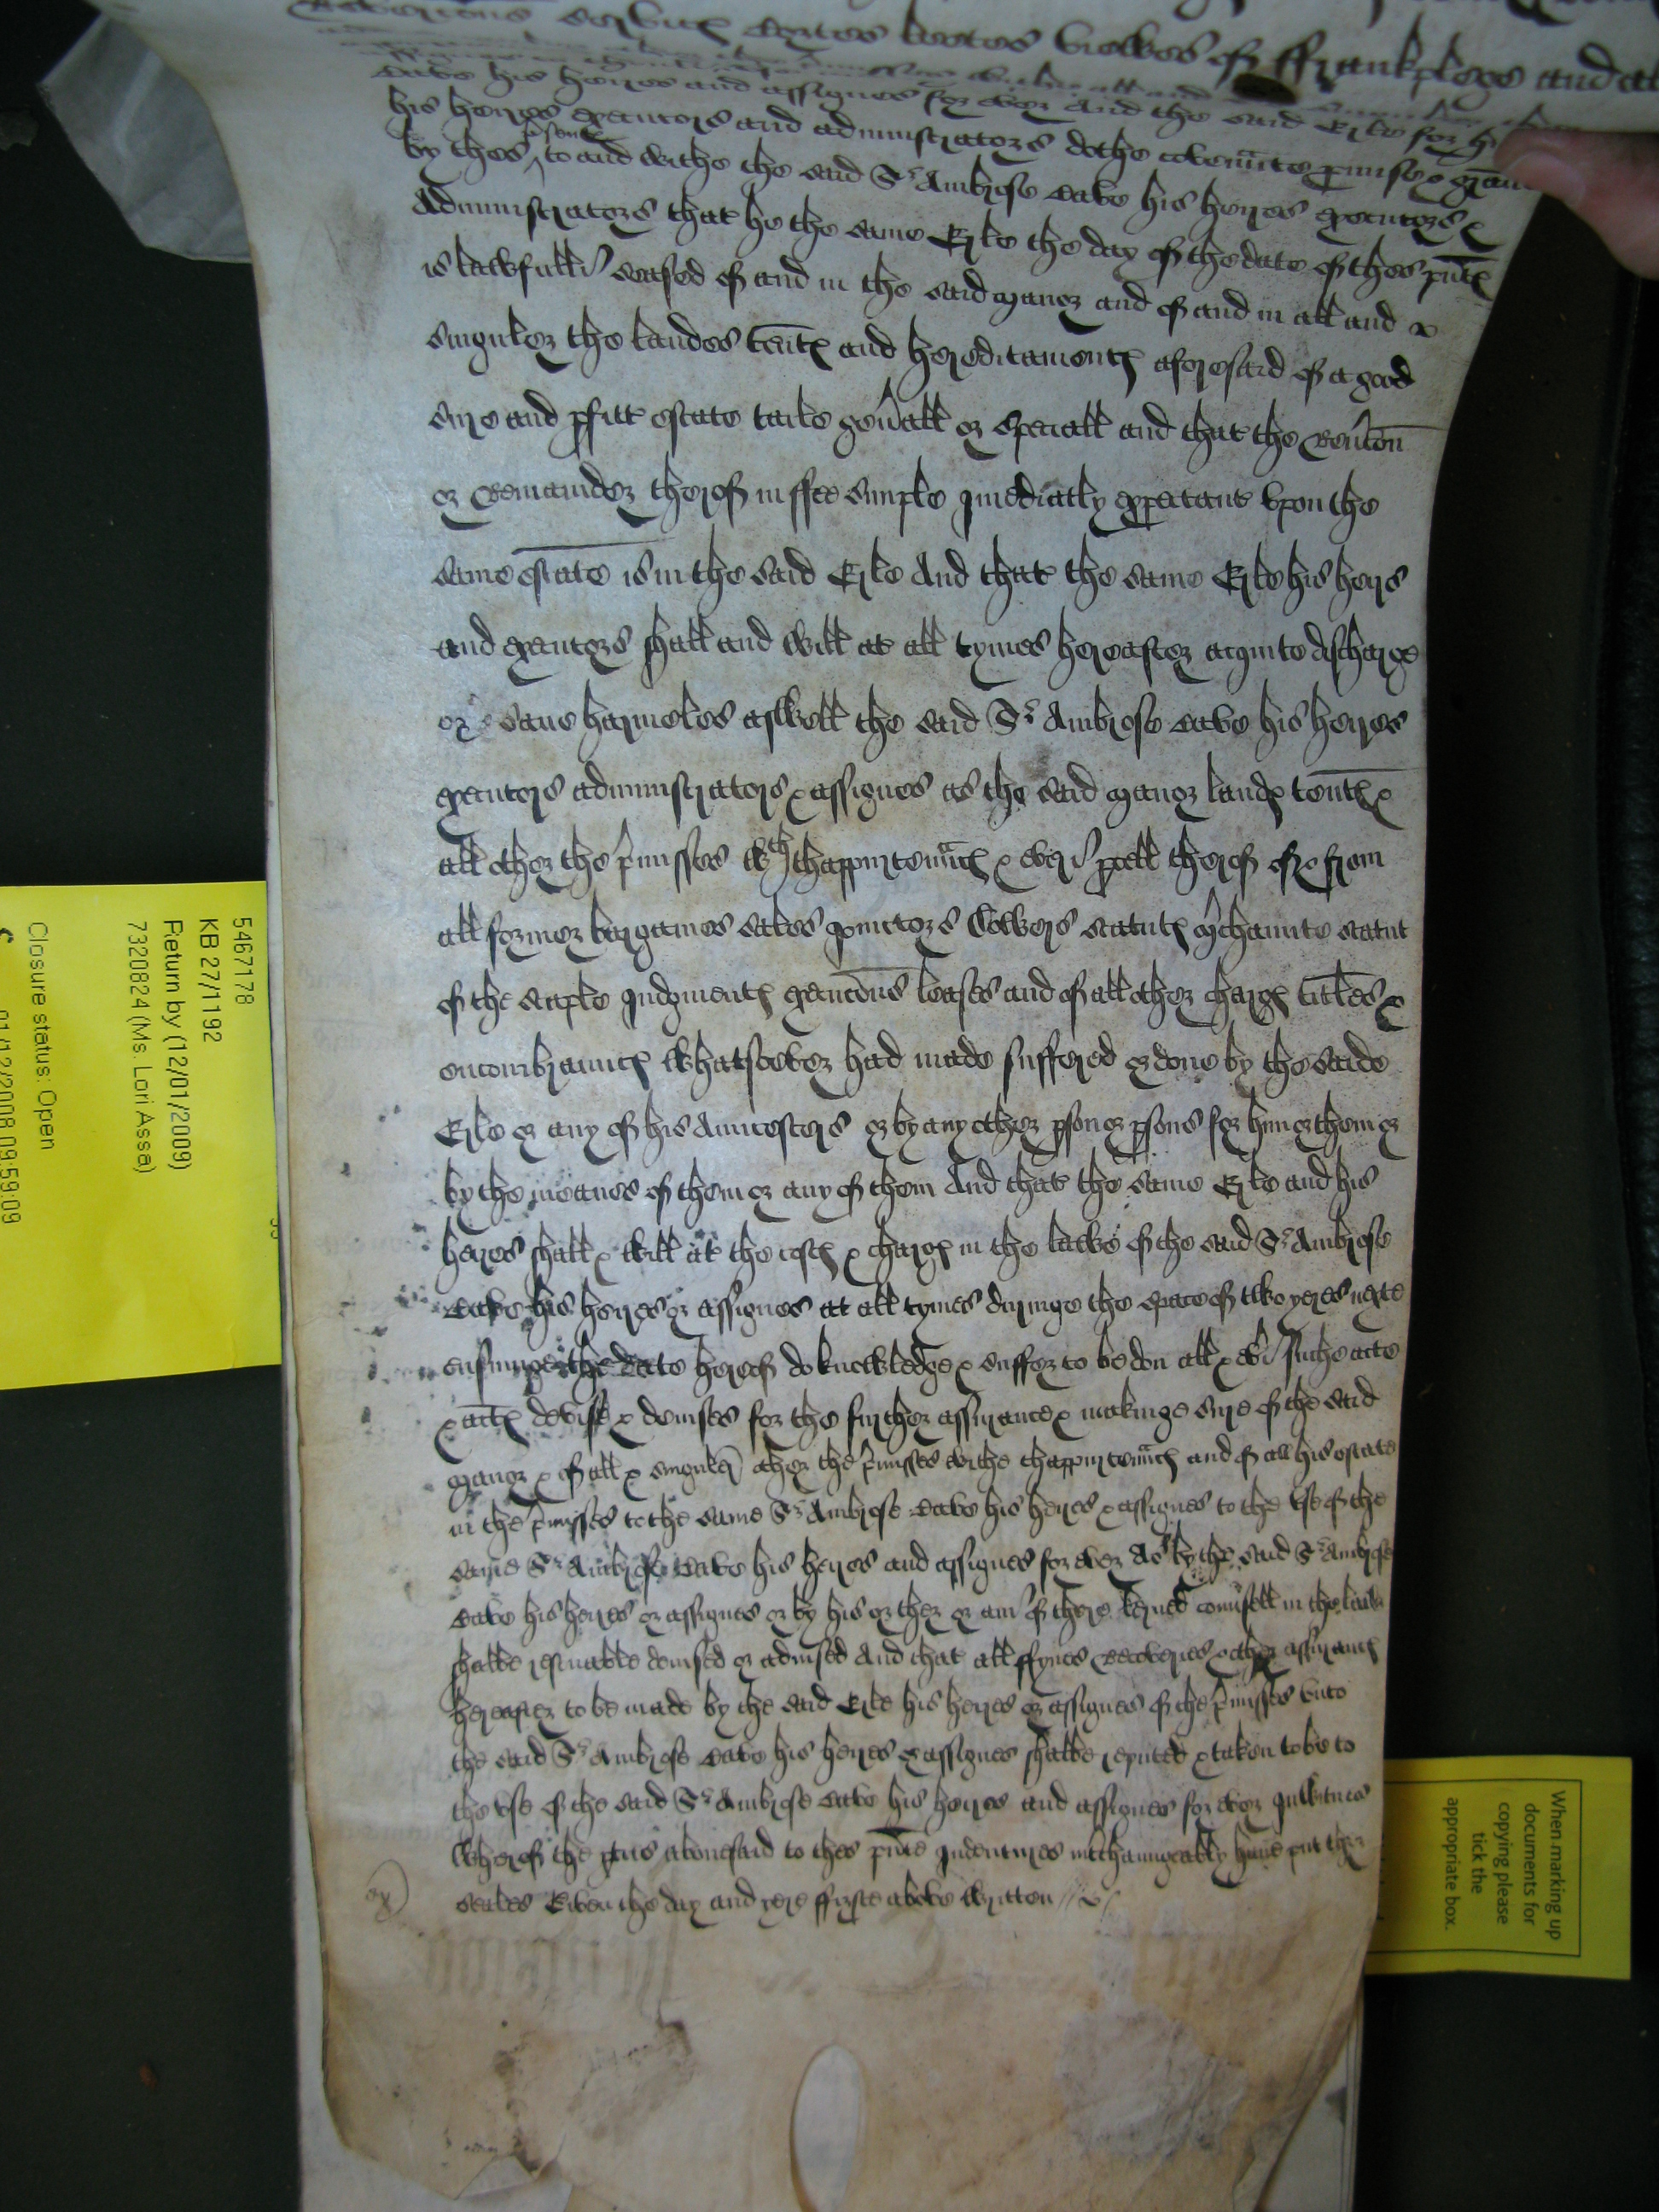 servic Courtes Leetes viewes of ffrankplege and
Cave his heires and assignes for ever And the said Erle for
his heires executors and administrators dothe covennte promise & graunt
by thes psentes to and withe the said Sr Ambrose Cave his heires executors &
Administrators that he the same Erle the day of the date of thes pntes
is lawfully seased of and in the said manor and of and in all and
singuler the landes tentes and hereditamentes aforesaid of a good
sure and pfitt estate taile genall or speciall and that the revercon
or Remainder therof in ffee simple Imediatly expectant upon the
same estate is in the said Erle And that the same Erle his heirs
and executors shall and will at all tymes hereafter acquite discharge
or save harmeles aswell the said Sr Ambrose Cave his heires
executors administrators & assignes as the said manor landes tentes &
all other the pmisses wth thappurtennces & every pcell therof of & from
all former bargaines sales Joinctors Dowers statutes mchaunte statut
of the staple Judgmentes execucons leases and of all other charges titles &
encombraunces whatsoever had made suffered or done by the saide
Erle or any of his Auncestors or by any other pson or psons for him or them or
by the meanes of them or any of them And that the same Erle and his
heires shall & will at the costes & charges in the lawe of the said Sr Ambrose
Cave his heires or assignes at all tymes duringe the space of two yeres nexte
ensuinge the date hereof do knowledge & suffer to be don all & evy suche acte
& actes devise & devises for the further assurance & makinge sure of the said
manor & of all & singuler other the pmisses withe thappurtennces and of all his estate
in the pmisses to the same Sr Ambrose Cave his heires & assignes to the use of the
same Sr Ambrose Cave his heires and assignes for ever As by the said Sr Ambrose
Cave his heires or assignes or by his or ther or any of there lerned counsell in the lawe
shalbe resonable devised or advised And that all ffynes Recoveries & other assurances
hereafter to be made by the said Erle his heires or assignes of the pmisses unto
the said Sr Ambrose Cave his heires & assignes shalbe reputed & taken to be to
the use of the said Sr Ambrose Cave his heires and assignes for ever In witnes
wherof the pties abovesaid to thes pnte Indentures intchaungeably have put ther
seales Even the day and yere ffirste above written
5467178
KB 27/1192
Return by (12/01/2009)
7320824 (Ms. Lori Assa)
Closure status: Open
01/12/2008 09:59:09
When marking up
documents for
copying please
tick the
appropriate box.